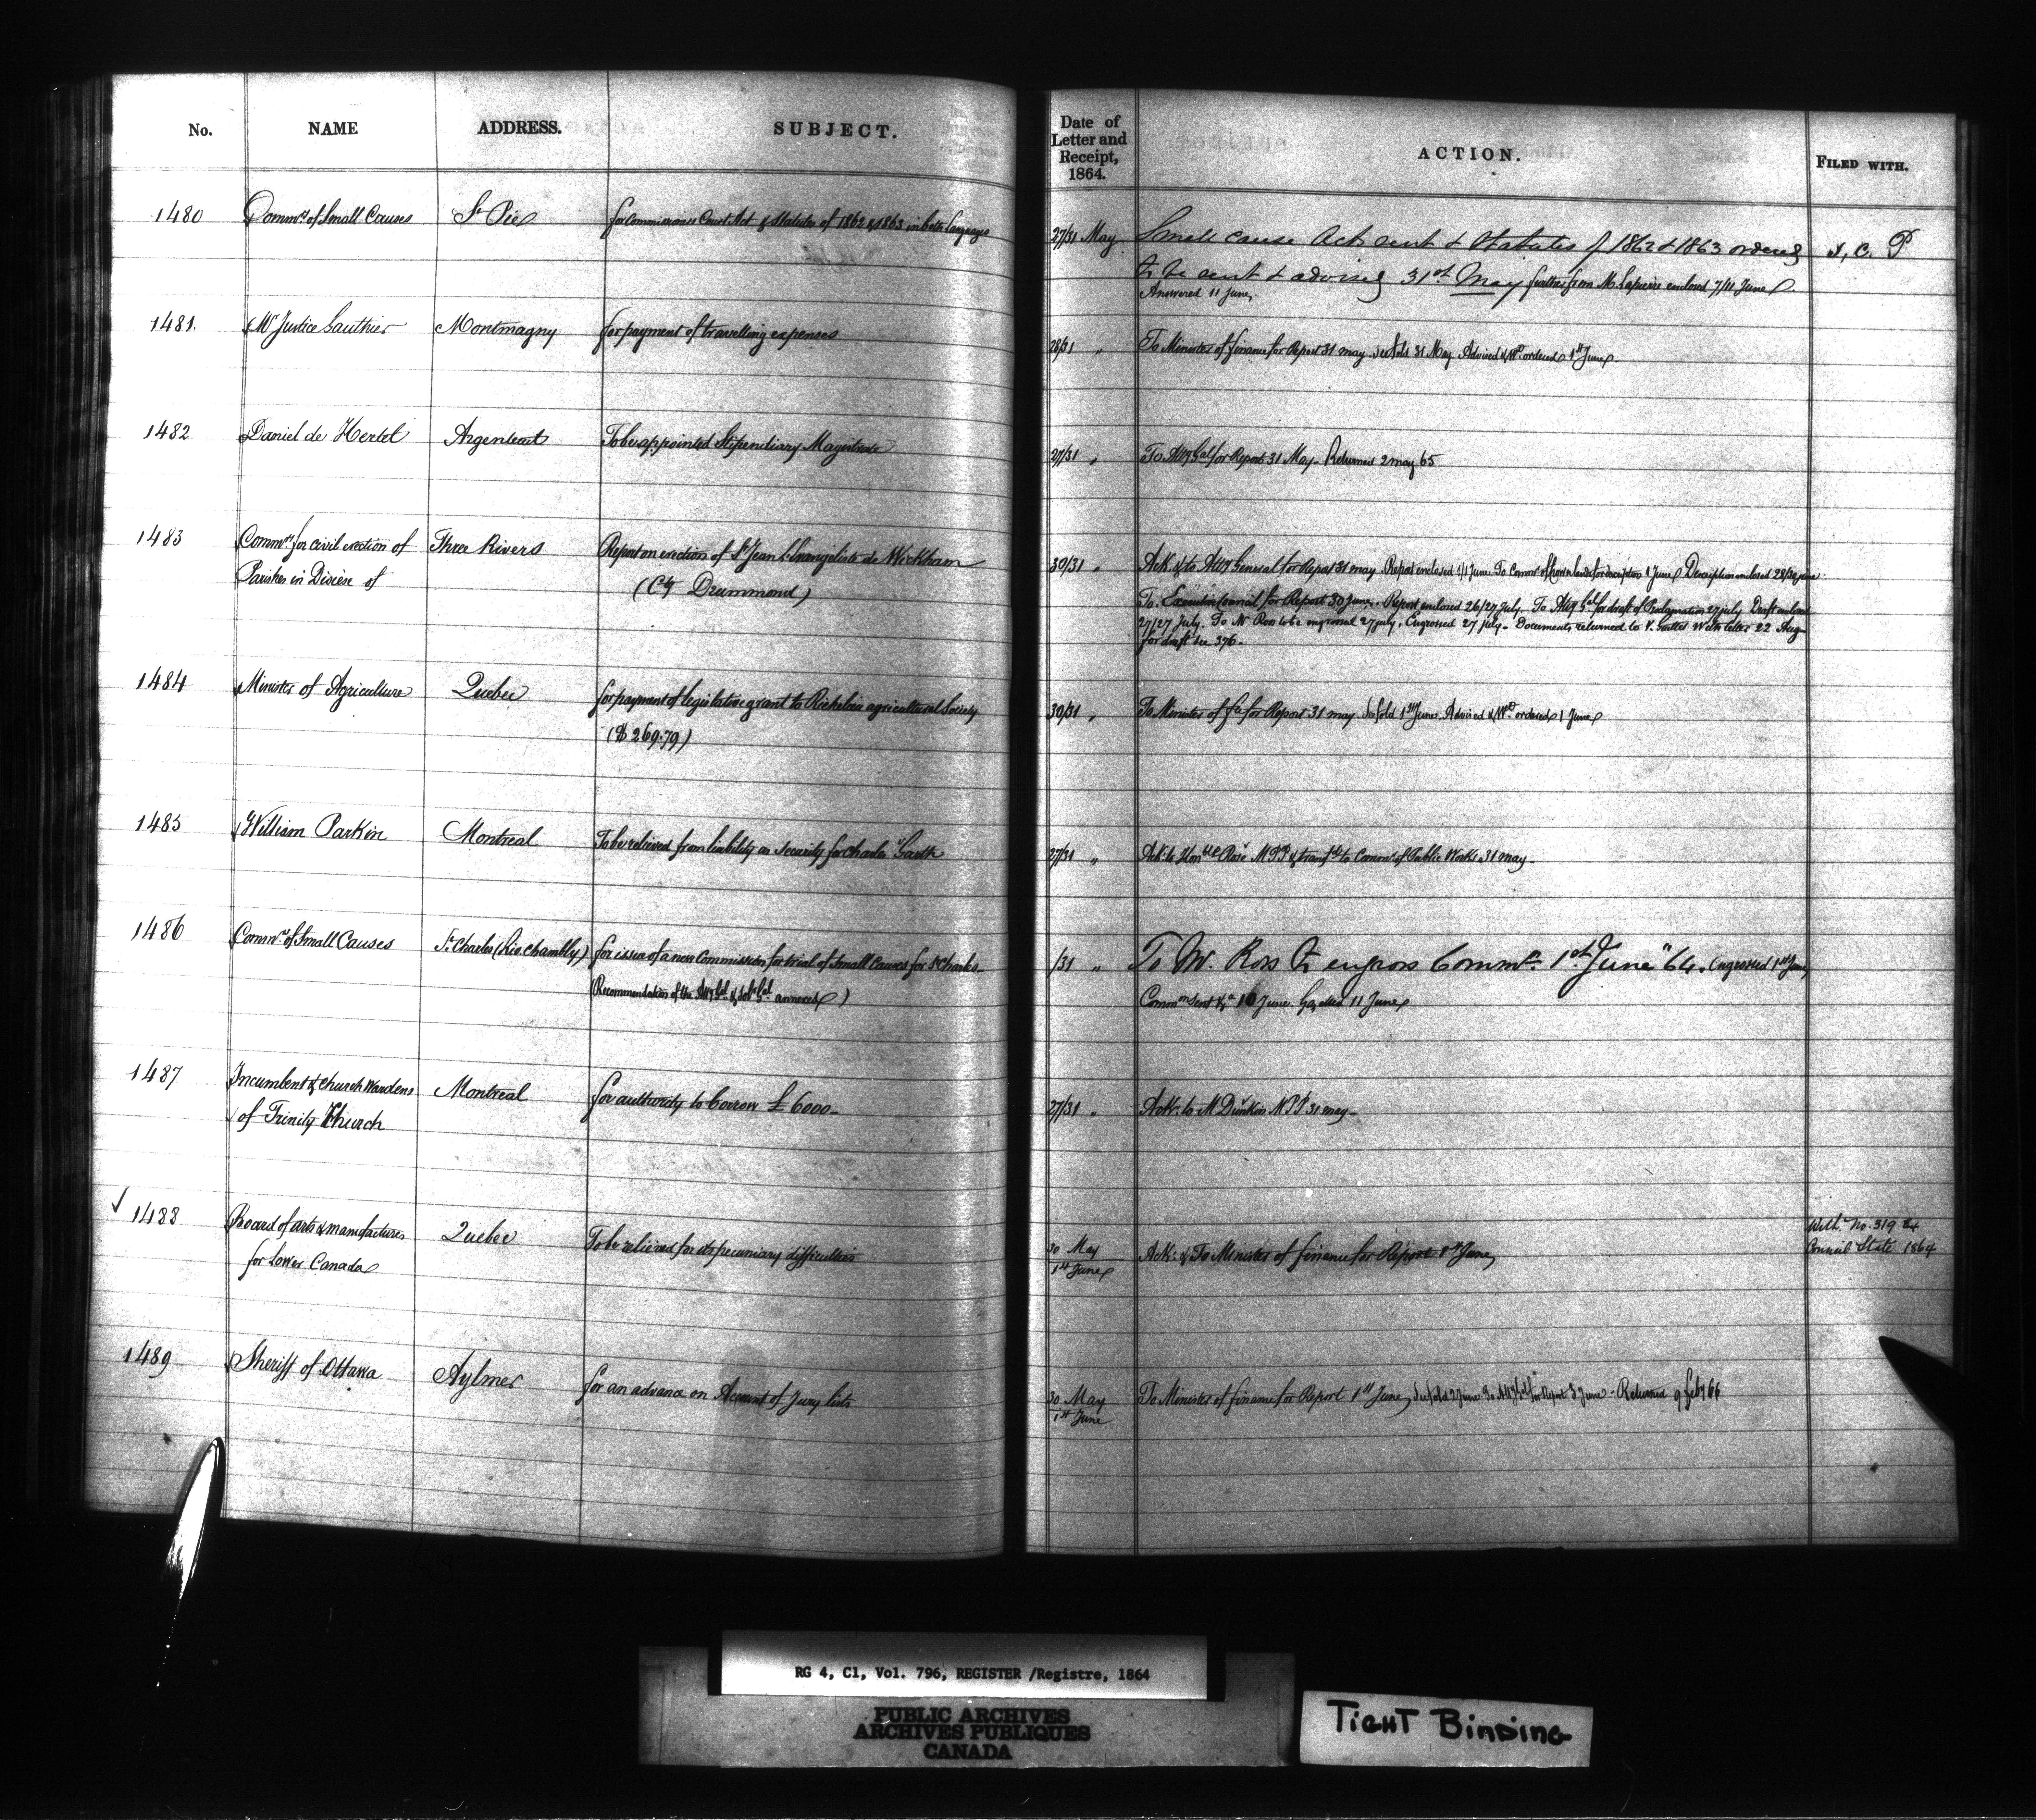 No. NAME ADDRESS. SUBJECT.
Date of Letter and Receipt, 1864. ACTION. FILED WITH.
1480 Commrs of Small Causes St Pie for Commissioners Court Act & Statutes of 1862 & 1863 in both languages
27/31 May Small cause Acts sent & Statutes of 1862 & 1863 ordered
to be sent & advised 31st May further from M. Lapierre enclosed 7/11 June
Answered 11 June
1481. Mr Justice Gauthier Montmagny for payment of travelling expenses
28/31 " To Minister of finance for Report 31 may See fold 31 May Advised & Wt ordered 1st June
1482 Daniel de Hertel Argenteuil To be appointed Stipendiary Magistrate
27/31 " To Atty Gal for Report 31 May - Returned 2 may 65
1483 Commrs for civil erection of Three Rivers Report on erection of St Jean L'Evangeliste de Wickham
Parishes in Diocese of (Cty Drummond)
30/31 " Ack. & to Atty General for Report 31 may Report enclosed 1/1 June To Commr of Crown lands for description 1 June Description enclosed 28/30 june
To Executive Council for Report 30 June. Report enclosed 26/27 July. To Atty Gal for draft of Proclamation 27 july Draft enclosed
27/27 July. To Mr Ross to be engrossed 27 july. Engrossed 27 july - Documents returned to with letter 22 Aug
for draft see 376.
1484 Minister of Agriculture Quebec for payment of legislative grant to Richelieu agricultural Society
($269.79)
30/31 " To Minister of fce for Report 31 may See fold 1st June. Advised & Wt ordered 1 June
1485 William Parkin Montreal To be relieved from liability as security for Charles Garth
27/31 " Ack. to Honble Rose MPP & transfd to Commr of Public Works 31 may -
1486 Commrs of Small Causes St Charles (Riv. Chambly) for issue of a new Commission for trial of Small Causes for St Charles
(Recommendation of the Atty Gal & Solr Gal annexed)
/31 " To Mr. Ross to engross Commn. 1st June "64. Engrossed 1st June
Commn sent &a 10 June. Gazetted 11 June
1487 Incumbent & Church Wardens Montreal for authority to borrow £6000 -
of Trinity Church
27/31 " Ack. to Mr Dunkin MPP 31 may -
✓ 1488 Board of arts & manufactures Quebec To be relieved for its pecuniary difficulties
for Lower Canada
30 May
1st June Ack: & To Minister of finance for Report 1st June
With No. 319 64
Council State 1864
1489 Sheriff of Ottawa Aylmer for an advance on Account of Jury lists
30 May
1st June To Minister of finance for Report 1st June, See fold 2 June. To Atty Gal for Report 3 June - Returned 9 feby 66
RG 4, C1, Vol. 796, REGISTER /Registre, 1864
PUBLIC ARCHIVES
ARCHIVES PUBLIQUES
CANADA
TIGHT BINDING